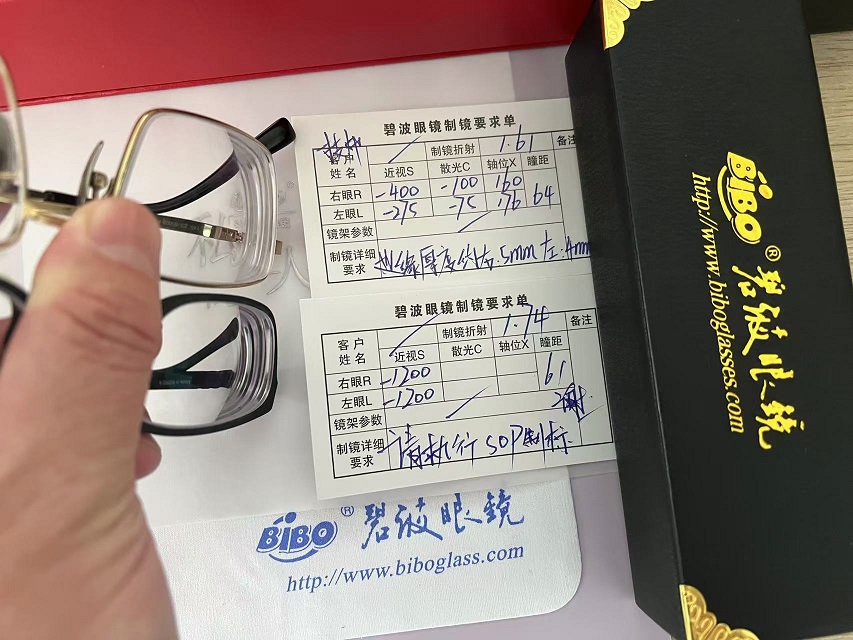 碧波眼镜制镜要求单
客户姓名 制镜折射 1.61 备注
近视S 散光C 轴位X 瞳距
右眼R -400 -100 160 64
左眼L -275 -75 176
镜架参数
制镜详细要求 边缘厚度约右.5mm左.4mm
碧波眼镜制镜要求单
客户姓名 制镜折射 1.74 备注
近视S 散光C 轴位X 瞳距
右眼R -1200 61
左眼L -1200
镜架参数
制镜详细要求 请执行SOP制标
BiBO® 碧波眼鏡
http://www.biboglass.com
BiBO® 碧波眼鏡
http://www.biboglasses.com